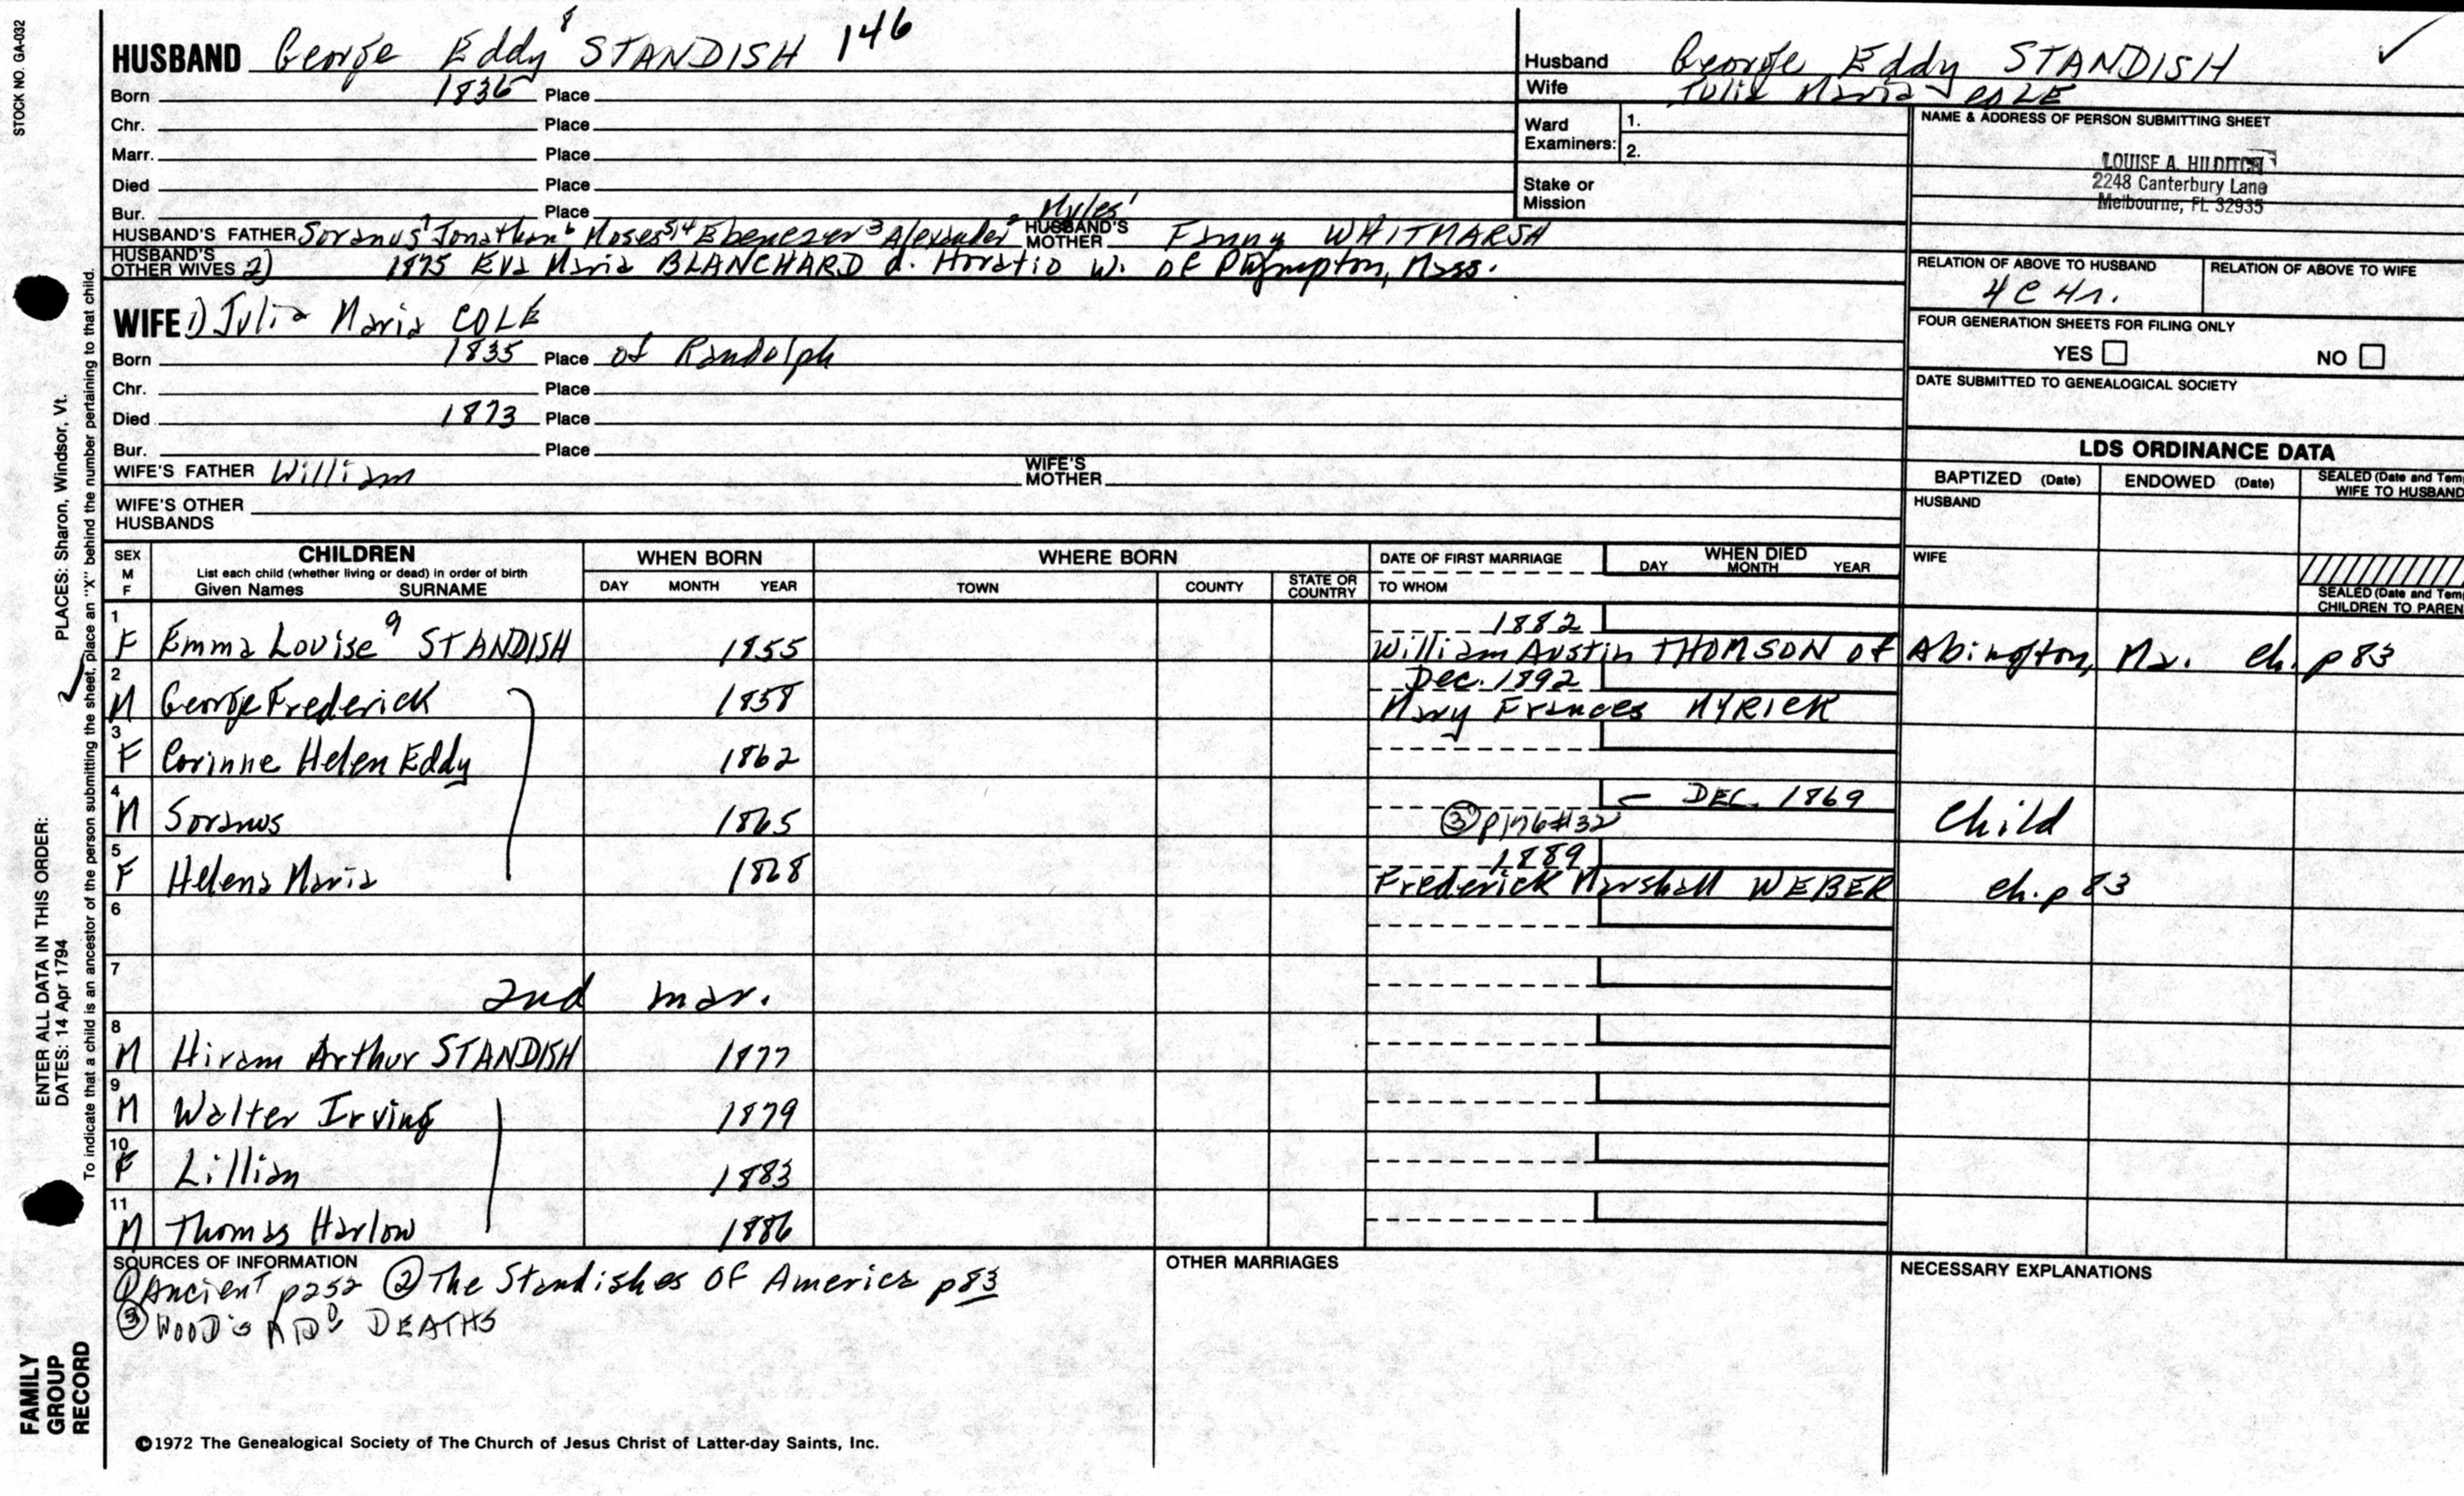 STOCK NO. GA-032
HUSBAND George Eddy 8 STANDISH 146
Born 1836 Place
Chr. Place
Marr. Place
Died Place
Bur. Place
Myles 1
HUSBAND'S FATHER Soranus 7 Jonathan 6 Moses 5,4 Ebenezer 3 Alexander 2 HUSBAND'S MOTHER Fanny WHITMARSH
HUSBAND'S OTHER WIVES 2) 1875 Eva Maria BLANCHARD d. Horatio W. of Plympton, Mass.
WIFE 1) Julia Maria COLE
Born 1835 Place of Randolph
Chr. Place
Died 1873 Place
Bur. Place
WIFE'S FATHER William WIFE'S MOTHER
WIFE'S OTHER HUSBANDS
Husband George Eddy STANDISH ✓
Wife Julia Maria COLE
Ward Examiners: 1.
2.
Stake or Mission
NAME & ADDRESS OF PERSON SUBMITTING SHEET
LOUISE A. HILDITCH
2248 Canterbury Lane
Melbourne, FL 32935
RELATION OF ABOVE TO HUSBAND RELATION OF ABOVE TO WIFE
4C 4r.
FOUR GENERATION SHEETS FOR FILING ONLY
YES NO
DATE SUBMITTED TO GENEALOGICAL SOCIETY
LDS ORDINANCE DATA
BAPTIZED (Date) ENDOWED (Date) SEALED (Date and Tem
WIFE TO HUSBAND
HUSBAND
WIFE
SEALED (Date and Tem
CHILDREN TO PAREN
SEX M F CHILDREN WHEN BORN WHERE BORN DATE OF FIRST MARRIAGE WHEN DIED
List each child (whether living or dead) in order of birth
Given Names SURNAME DAY MONTH YEAR TOWN COUNTY STATE OR COUNTRY TO WHOM DAY MONTH YEAR
1 F Emma Louise 9 STANDISH 1855 1882
William Austin THOMSON of Abington, Ma. ch. p 83
2 M George Frederick 1858 Dec. 1892
Mary Frances MYRICK
3 F Corinne Helen Eddy 1862
4 M Soranus 1865 – DEC. 1869
③ p176#32 Child
5 F Helena Maria 1868 1889
Frederick Marshall WEBER ch. p 83
6
7 2nd mar.
8 M Hiram Arthur STANDISH 1877
9 M Walter Irving 1879
10 F Lillian 1883
11 M Thomas Harlow 1886
SOURCES OF INFORMATION
① Ancient p252 ② The Standishes OF America p83
③ WOOD'S DEATHS
OTHER MARRIAGES
NECESSARY EXPLANATIONS
©1972 The Genealogical Society of The Church of Jesus Christ of Latter-day Saints, Inc.
FAMILY GROUP RECORD
ENTER ALL DATA IN THIS ORDER:
DATES: 14 Apr 1794 PLACES: Sharon, Windsor, Vt.
To indicate that a child is an ancestor of the person submitting the sheet, place an "X" behind the number pertaining to that child.